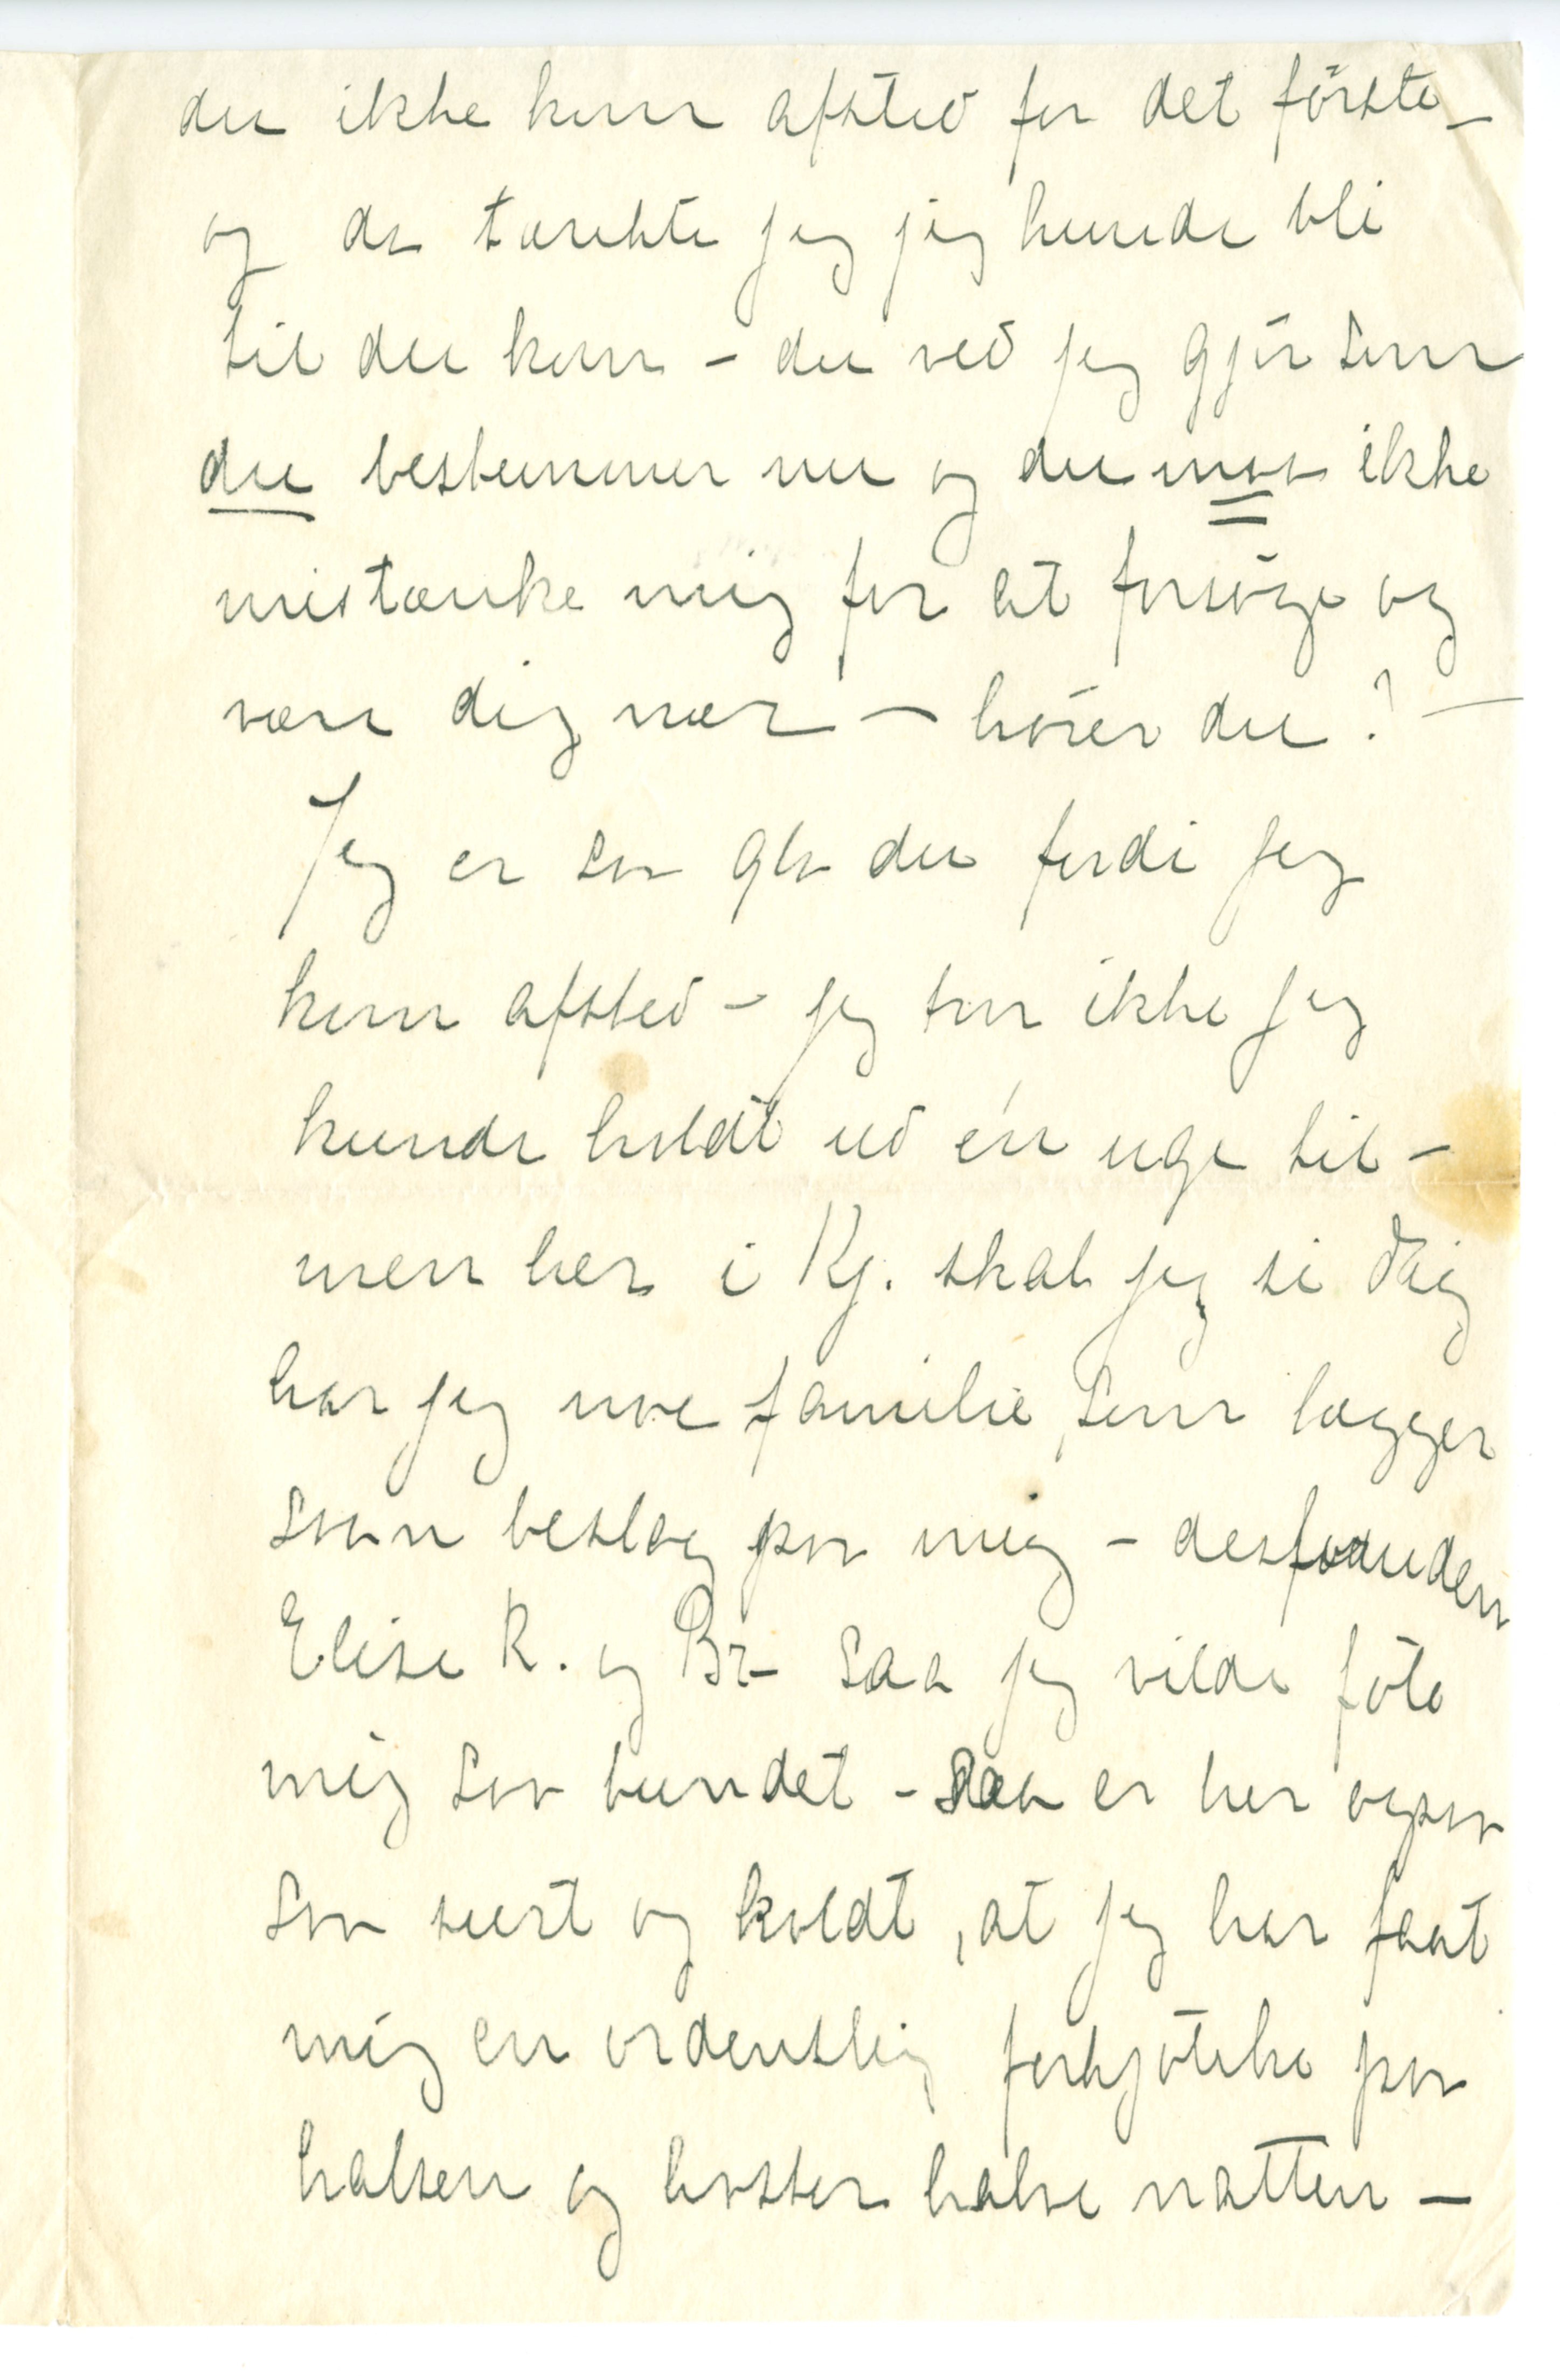 du ikke kom afsted for det första –
og da tænkte jeg jeg kunde bli
til du kom – du ved jeg gjör som
du bestemmer nu og du maa ikke
mistænke mig for at forsöge og
være dig nær – hörer du? –
Jeg er saa gla du fordi jeg
kom afsted – jeg tror ikke jeg
kunde holdt ud én uge til –
men her i Kj. skal jeg si dig
har jeg noe familie, som lægger
saan beslag paa mig – desforuden
Elise R. og Br – saa jeg vilde föle
mig saa bundet – saa er her ogsaa
saa surt og koldt, at jeg har faat
mig en ordentslig forkjölelse paa
halsen og hoster halve natten –